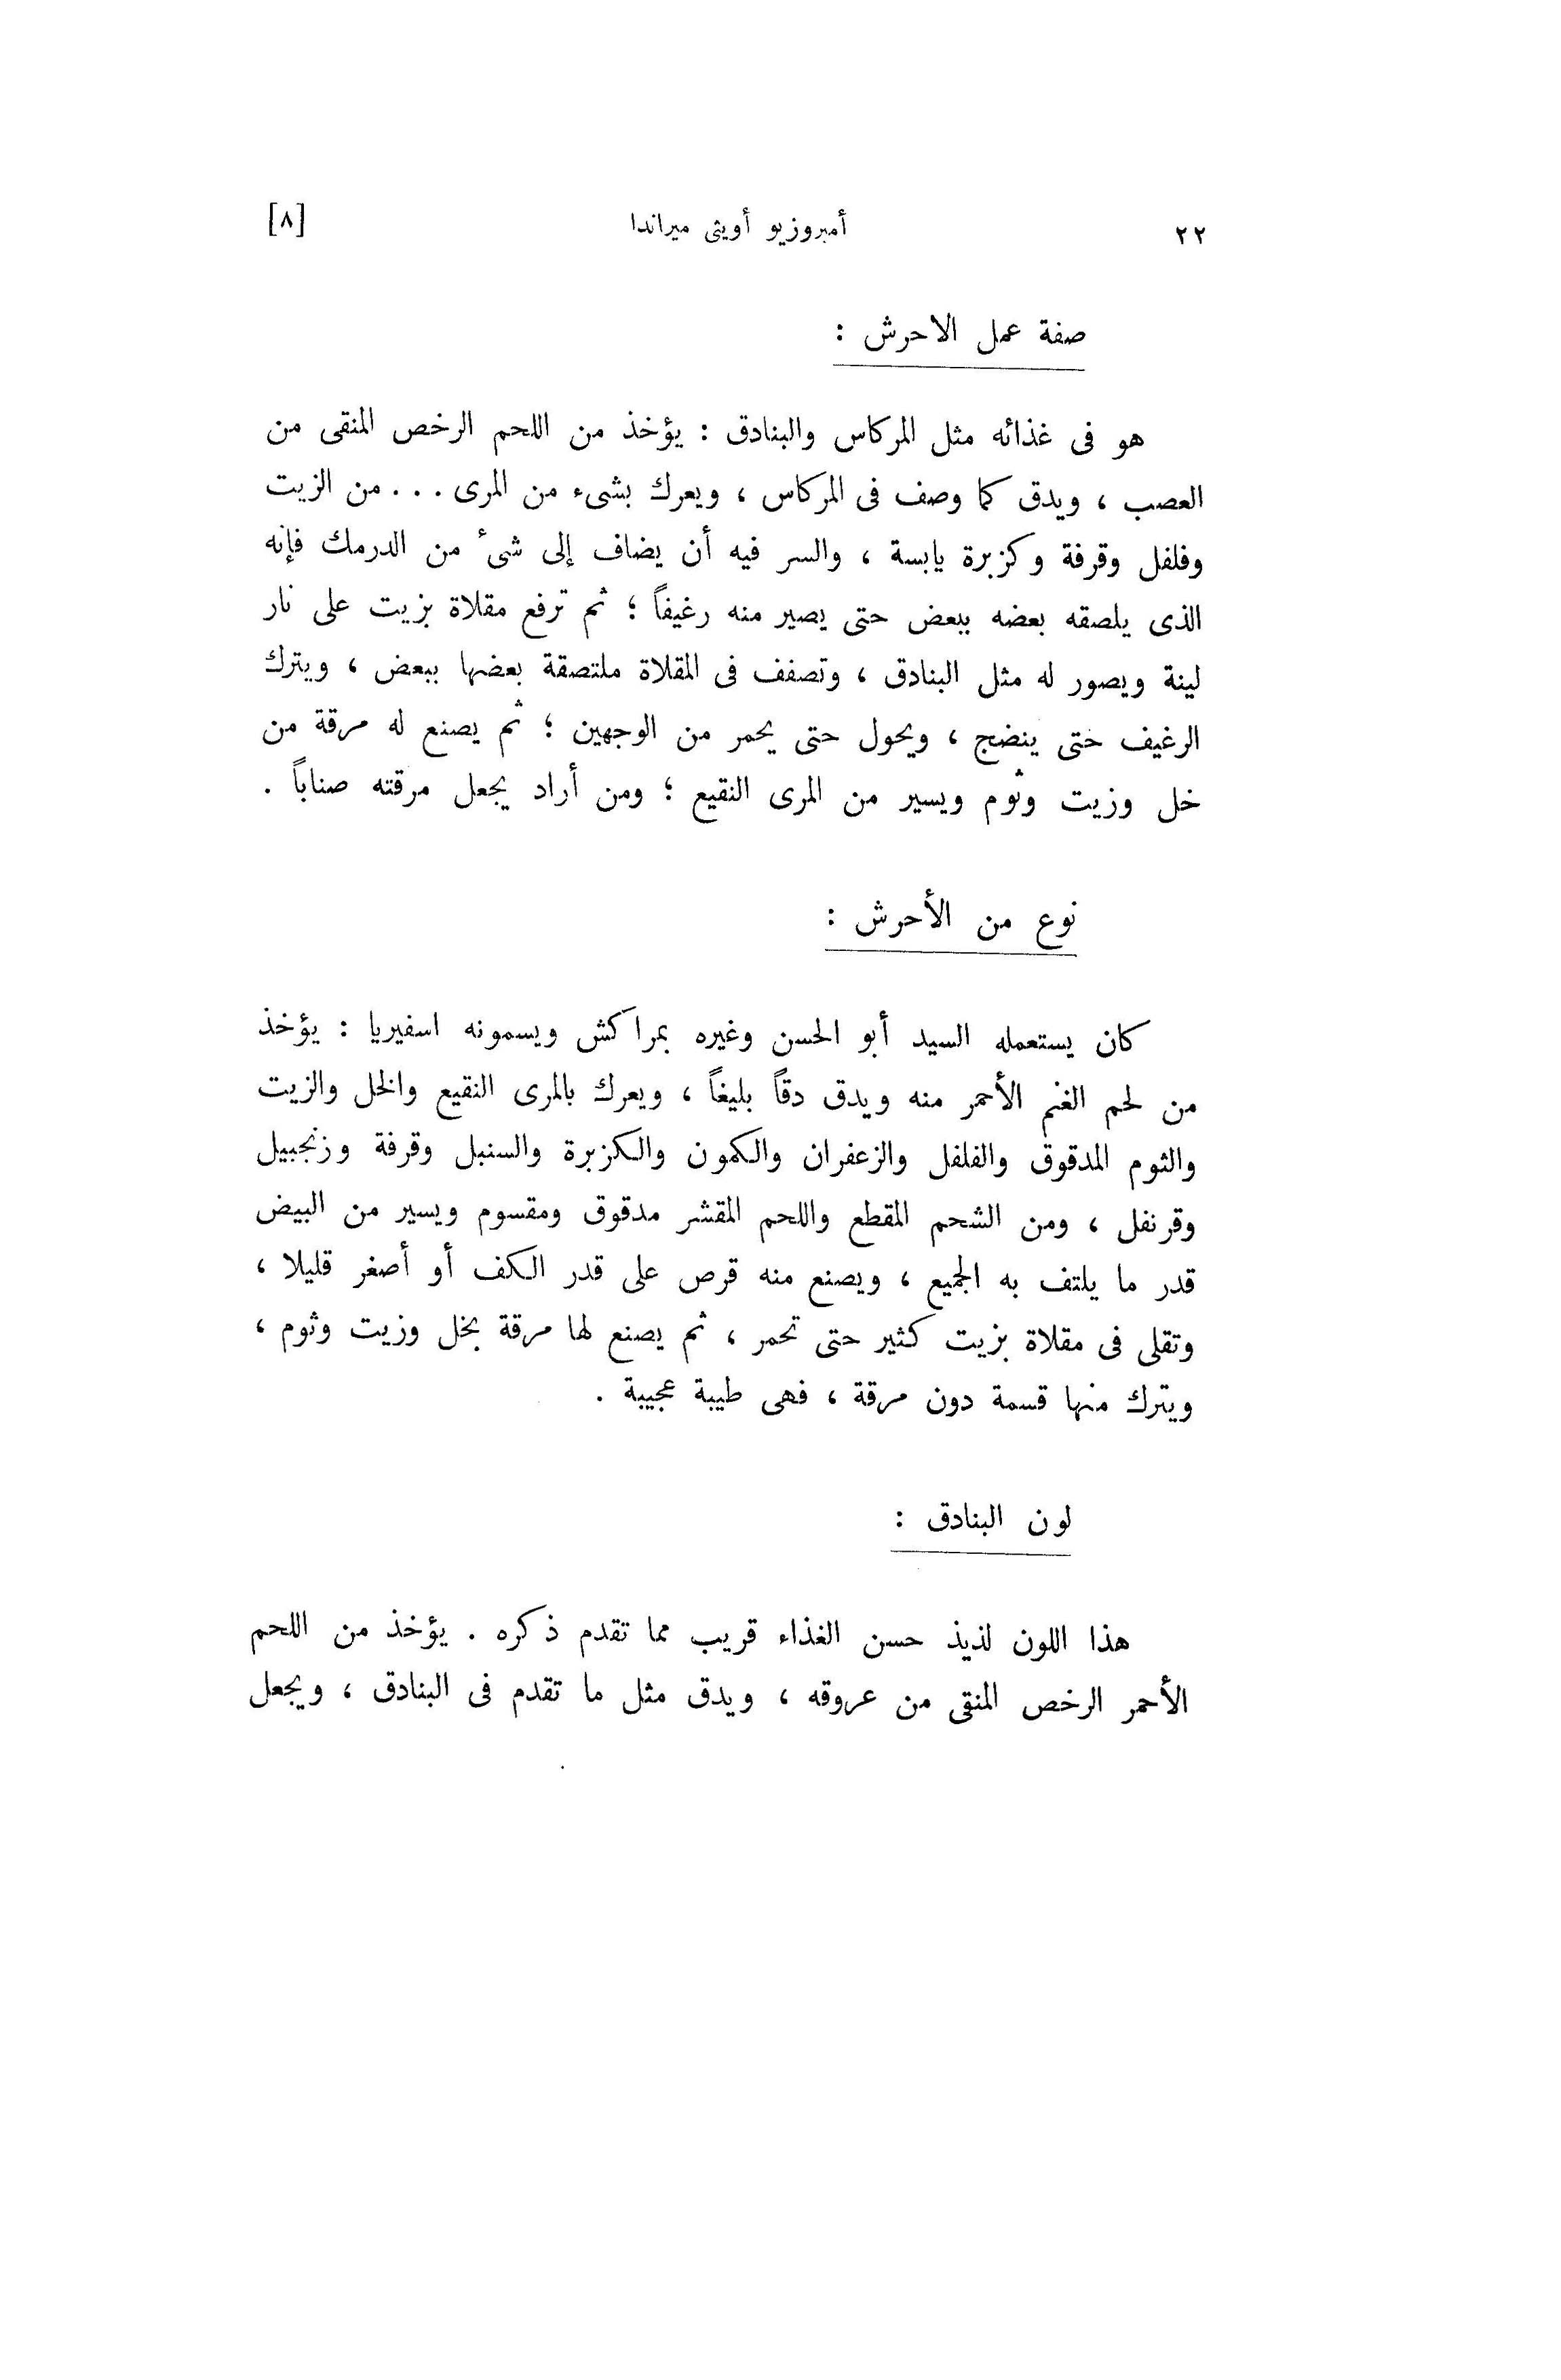 ٢٢ أمبروزيو أويثى ميراندا [٨]
صفة عمل الاحرش :
هو فى غذائه مثل المركاس والبنادق : يؤخذ من اللحم الرخص المنقى من
العصب ، ويدق كما وصف فى المركاس ، ويعرك بشىء من المرى ... من الزيت
وفلفل وقرفة وكزبرة يابسة ، والسر فيه أن يضاف إلى شىٔ من الدرمك فإنه
الذى يلصقه بعضه ببعض حتى يصير منه رغيفاً ؛ ثم ترفع مقلاة بزيت على نار
لينة ويصور له مثل البنادق ، وتصفف فى المقلاة ملتصقة بعضها ببعض ، ويترك
الرغيف حتى ينضج ، ويحول حتى يحمر من الوجهين ؛ ثم يصنع له مرقة من
خل وزيت وثوم ويسير من المرى النقيع ؛ ومن أراد يجعل مرقته صناباً .
نوع من الأحرش :
كان يستعمله السيد أبو الحسن وغيره بمراكش ويسمونه اسفيريا : يؤخذ
من لحم الغنم الأحمر منه ويدق دقاً بليغاً ، ويعرك بالمرى النقيع والخل والزيت
والثوم المدقوق والفلفل والزعفران والكمون والكزبرة والسنبل وقرفة وزنجبيل
وقرنفل ، ومن الشحم المقطع واللحم المقشر مدقوق ومقسوم ويسير من البيض
قدر ما يلتف به الجميع ، ويصنع منه قرص على قدر الكف أو أصغر قليلا ،
وتقلى فى مقلاة بزيت كثير حتى تحمر ، ثم يصنع لها مرقة بخل وزيت وثوم ،
ويترك منها قسمة دون مرقة ، فهى طيبة عجيبة .
لون البنادق :
هذا اللون لذيذ حسن الغذاء قريب مما تقدم ذكره . يؤخذ من اللحم
الأحمر الرخص المنقى من عروقه ، ويدق مثل ما تقدم فى البنادق ، ويجعل